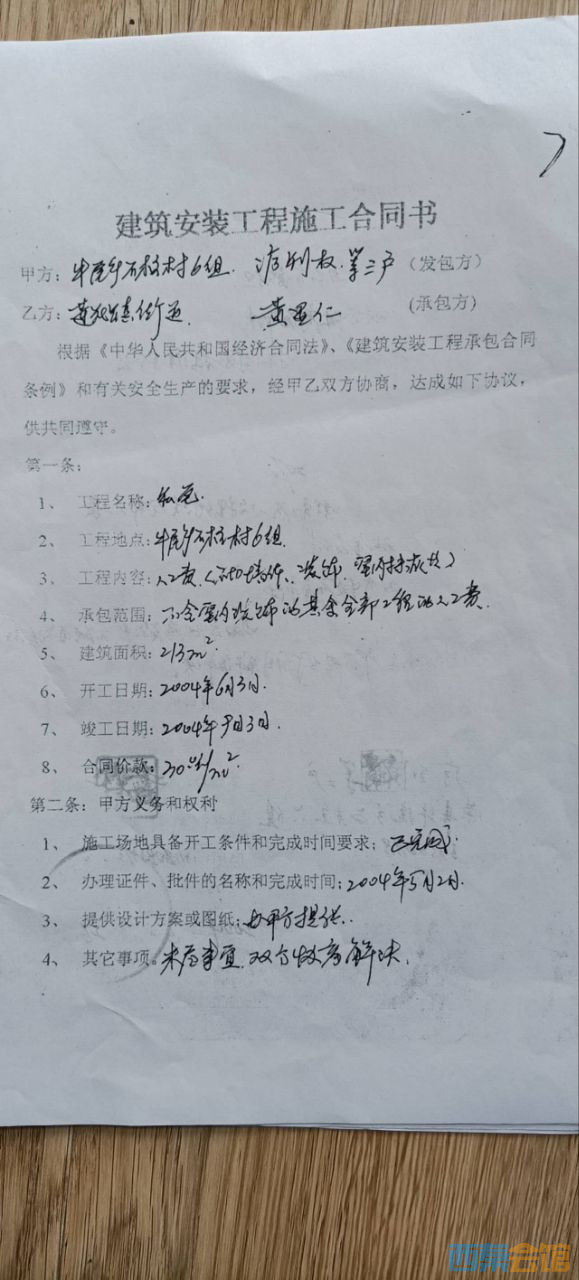 建筑安装工程施工合同书
甲方：牛尾乡石柱村6组. 权. 等三户（发包方）
乙方： 黄 仁（承包方）
根据《中华人民共和国经济合同法》、《建筑安装工程承包合同
条例》和有关安全生产的要求，经甲乙双方协商，达成如下协议，
供共同遵守。
第一条：
1、 工程名称：私宅.
2、 工程地点：牛尾乡石柱村6组.
3、 工程内容：人工费
4、 承包范围：不含室内装饰的其余全部工程的人工费.
5、 建筑面积：213m².
6、 开工日期：2004年6月3日.
7、 竣工日期：2004年 月3日.
8、 合同价款： /m²
第二条：甲方义务和权利
1、 施工场地具备开工条件和完成时间要求；已完成.
2、 办理证件、批件的名称和完成时间：2004年5月2日.
3、 提供设计方案或图纸：由甲方提供.
4、 其它事项。未尽事宜，双方 解决.
西祠会馆